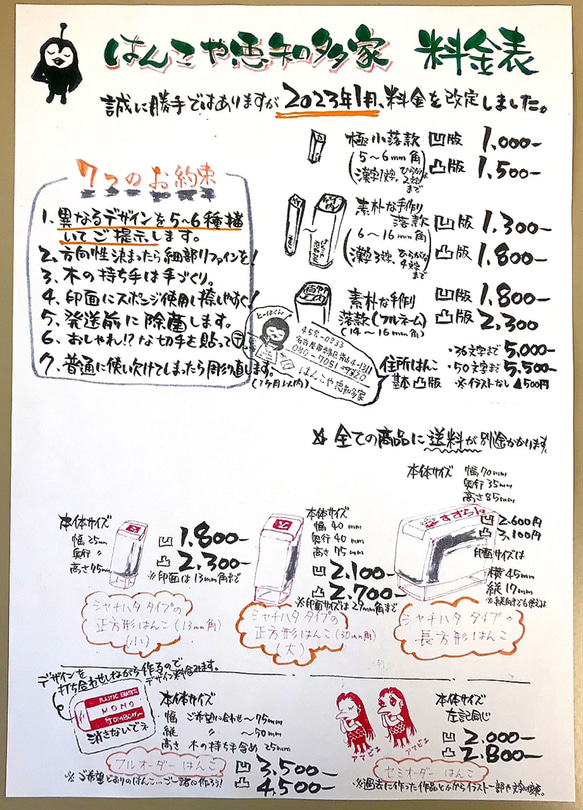 はんこや恵知多家 料金表
誠に勝手ではありますが2023年1月、料金を改定しました。
極小落款 凹版 1,000-
(5~6mm角) 凸版 1,500-
漢字1文字、ひらがな2文字まで
7つのお約束
1、異なるデザインを5~6種描いてご提示します。
2、方向性決まったら細部リファインを!
3、木の持ち手は手づくり。
4、印面にスポンジ使用し捺しやすく!
5、発送前に除菌します。
6、おしゃれ!?な切手を貼って〒
7、普通に使い欠けてしまったら彫り直します。
(1ヶ月以内)
素朴な手作り
落款 凹版 1,300-
(6~16mm角) 凸版 1,800-
漢字3文字、ひらがな4文字まで
素朴な手作り 凹版 1,800-
落款(フルネーム) 凸版 2,300
(14~16mm角)
458-0933
はんこや恵知多家
住所はんこ
基本凸版
・36文字まで 5,000-
・50文字まで 5,500-
※イラストなし 4500円
※全ての商品に送料が別途かかります。
本体サイズ
幅25mm
奥行 〃
高さ75mm
凹 1,800-
凸 2,300-
※印面は13mm角まで
シャチハタタイプの
正方形はんこ(13mm角)
(小)
本体サイズ
幅 40mm
奥行 40mm
高さ 75mm
凹 2,100-
凸 2,700-
※印面サイズは29mm角まで
シャチハタタイプの
正方形はんこ(30mm角)
(大)
本体サイズ 幅70mm
奥行35mm
高さ85mm
すずらん
凹 2,600円
凸 3,100円
印面サイズは
横45mm
縦17mm
シャチハタタイプの
長方形はんこ
デザインを
打ち合わせしながら作るので
デザイン料含みます。
PLASTIC ERASER
MONO
TOMBOW
消さないでネ
本体サイズ
幅 ご希望に合わせ~75mm
縦 〃 ~50mm
高さ 木の持ち手含め 25mm
フルオーダーはんこ
凹 3,500-
凸 4,500-
※ご希望どおりのはんこ…ご一諸に作ろう!
アマビエ
アマビエ
本体サイズ
左に同じ
凹 2,000-
凸 2,800-
セミオーダーはんこ